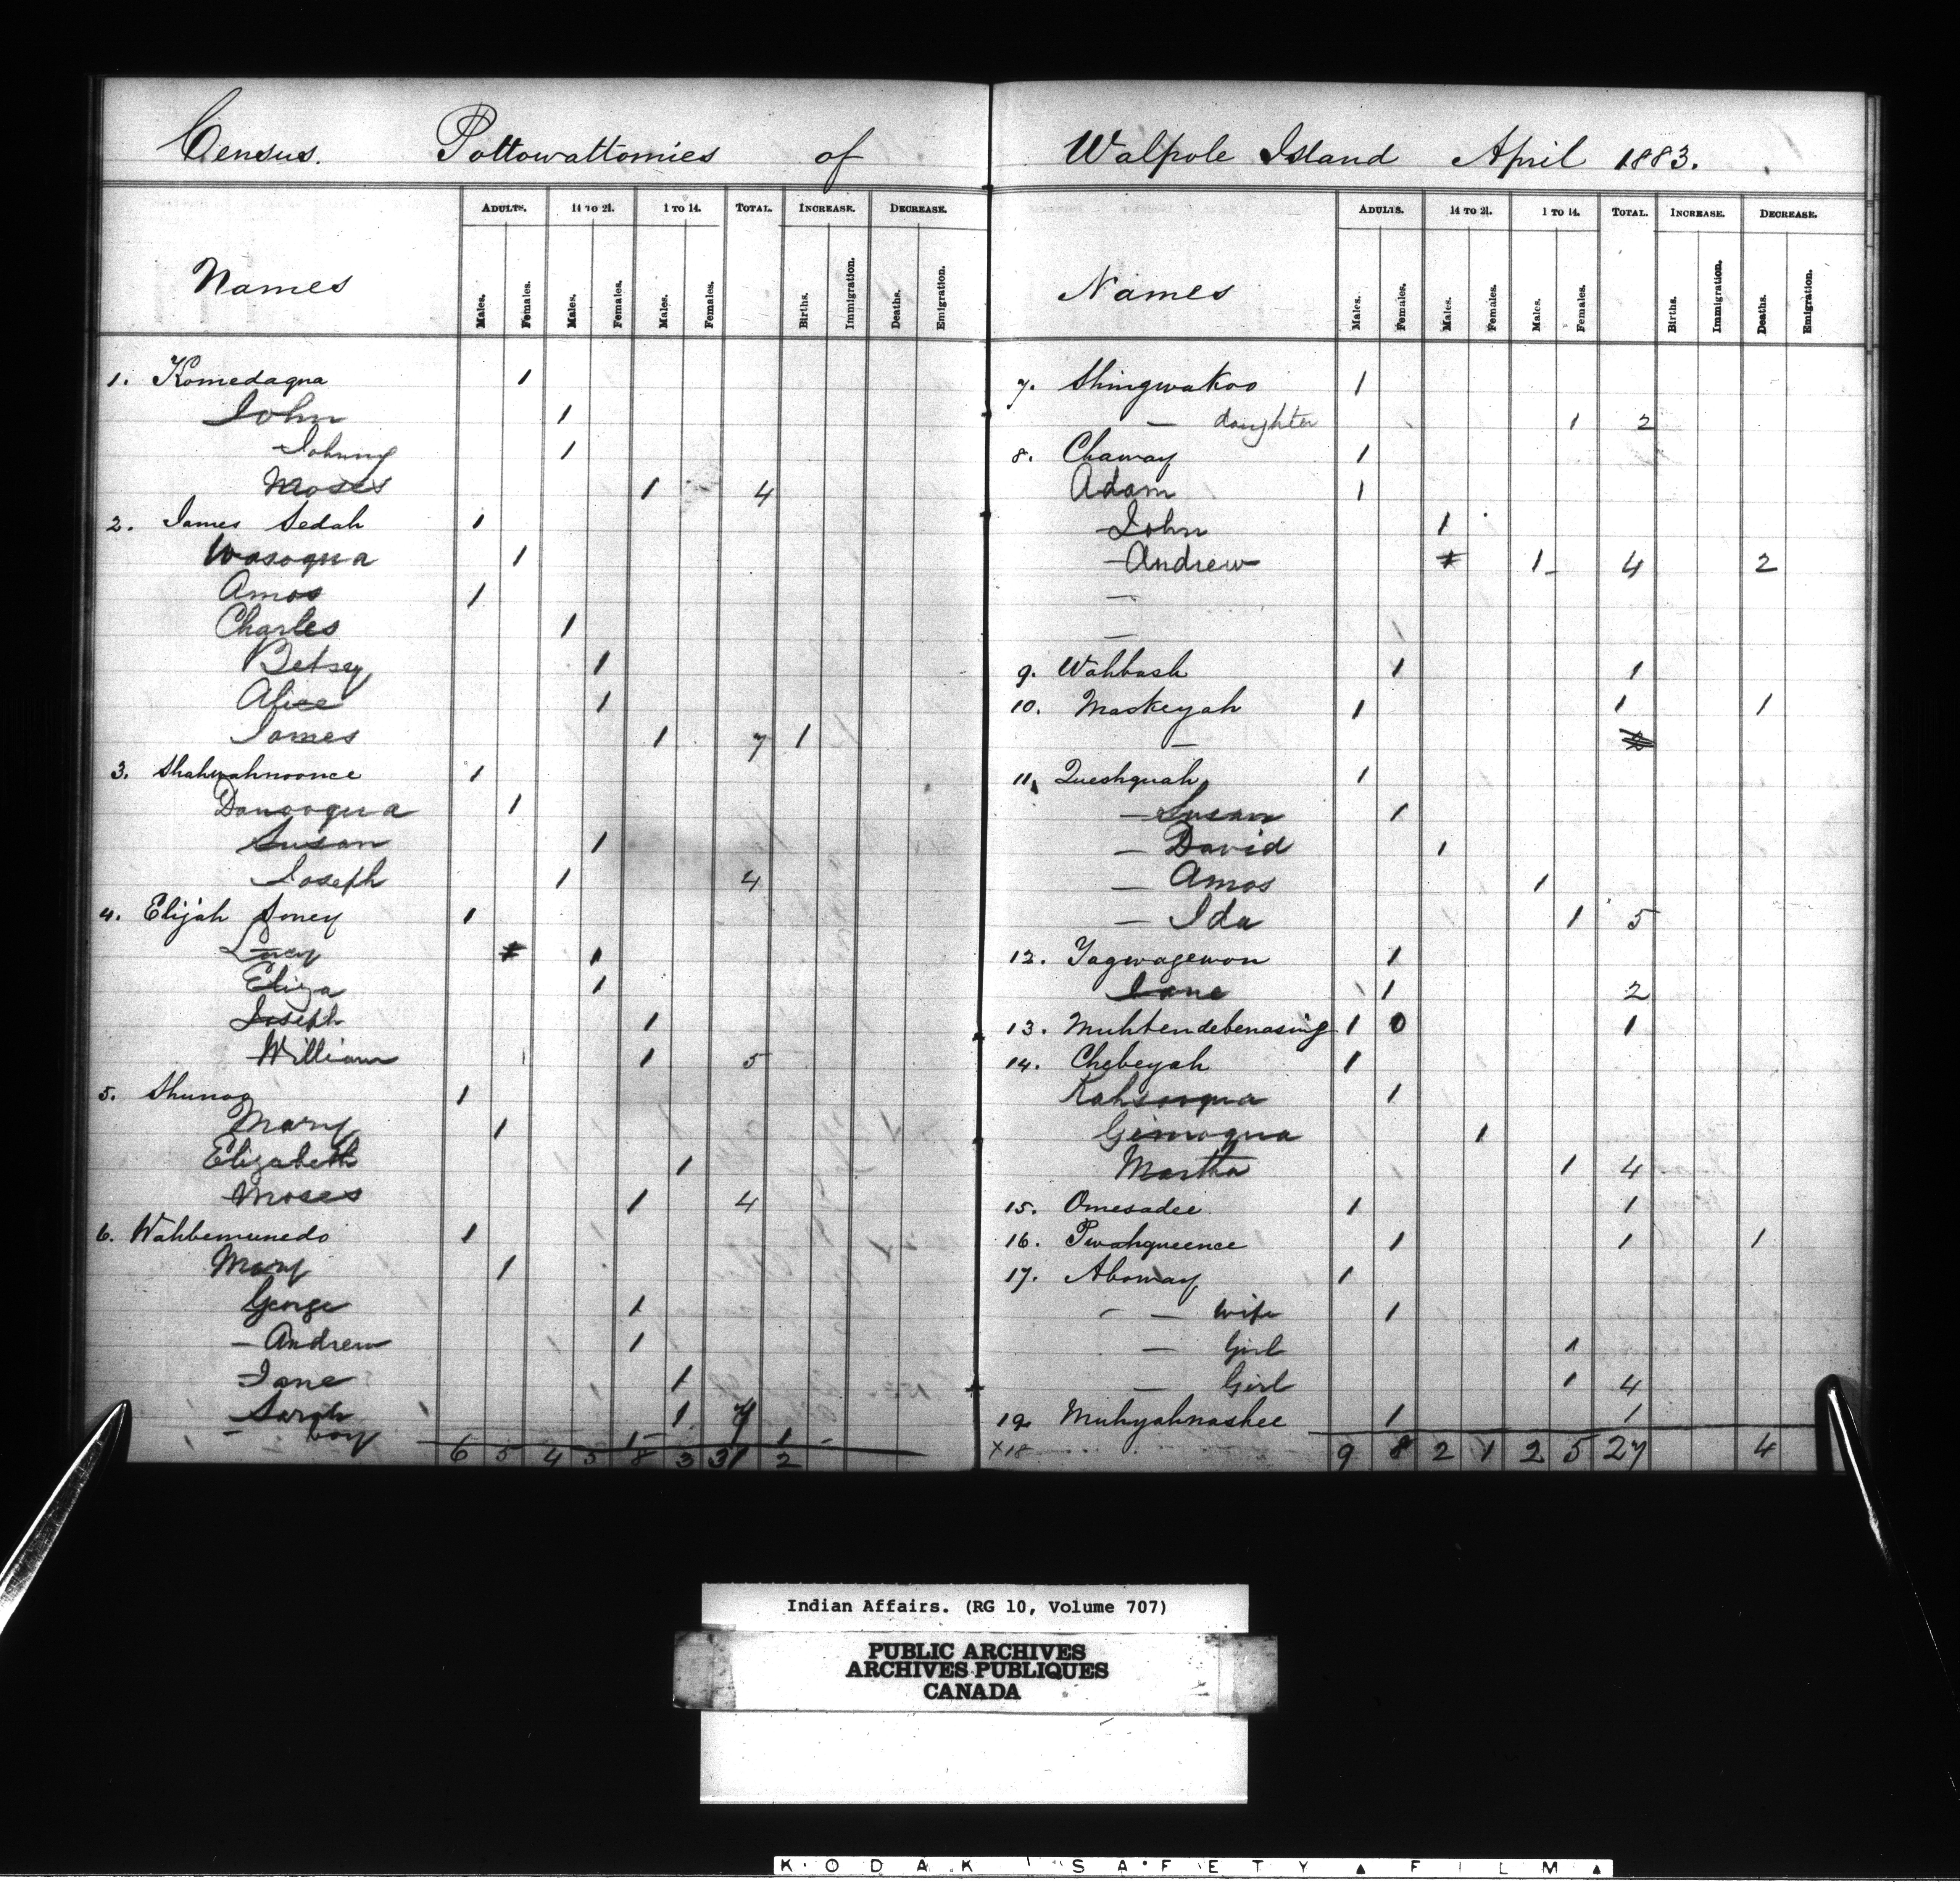 Census. Pottowattomies of
Names ADULTS. 14 TO 21. 1 TO 14. TOTAL. INCREASE. DECREASE.
Males. Females. Males. Females. Males. Females. Births. Immigration. Deaths. Emigration.
1. Komedaqua 1
John 1
Johnny 1
Moses 1 4
2. James Sedah 1
Wasoqua 1
Amos 1
Charles 1
Betsy 1
Alice 1
James 1 7 1
3. Shahwahnoonce 1
Danooqua 1
Susan 1
Joseph 1 4
4. Elijah Soney 1
Lucy 1
Eliza 1
Joseph 1
William 1 5
5. Shunog 1
Mary 1
Elizabeth 1
Moses 1 4
6. Wahbemunedo 1
Mary 1
George 1
- Andrew 1
- Jane 1
- Sarah 1 7
- boy 1 1
6 5 4 5 8 3 31 2
Walpole Island April 1883.
Names ADULTS. 14 TO 21. 1 TO 14. TOTAL. INCREASE. DECREASE.
Males. Females. Males. Females. Males. Females. Births. Immigration. Deaths. Emigration.
7. Shingwakoo 1
— daughter 1 2
8. Chaway 1
Adam 1
- John 1
- Andrew 1 4 2
—
—
9. Wahbash 1 1
10. Maskeyah 1 1 1
—
11. Queshquah 1
- Susan 1
- David 1
- Amos 1
- Ida 1 5
12. Yagwagewon 1
Jane 1 2
13. Muhtendebenasing 1 0 1
14. Chebeyah 1
Kahsooqua 1
Gimoqua 1
Martha 1 4
15. Omesadee 1 1
16. Pwahqueence 1 1 1
17. Aboway 1
- — wife 1
— Girl 1
— Girl 1 4
19. Muhyahnashee 1 1
X18 9 8 2 1 2 5 27 4
Indian Affairs. (RG 10, Volume 707)
PUBLIC ARCHIVES
ARCHIVES PUBLIQUES
CANADA
KODAK SAFETY ▲ FILM ▲